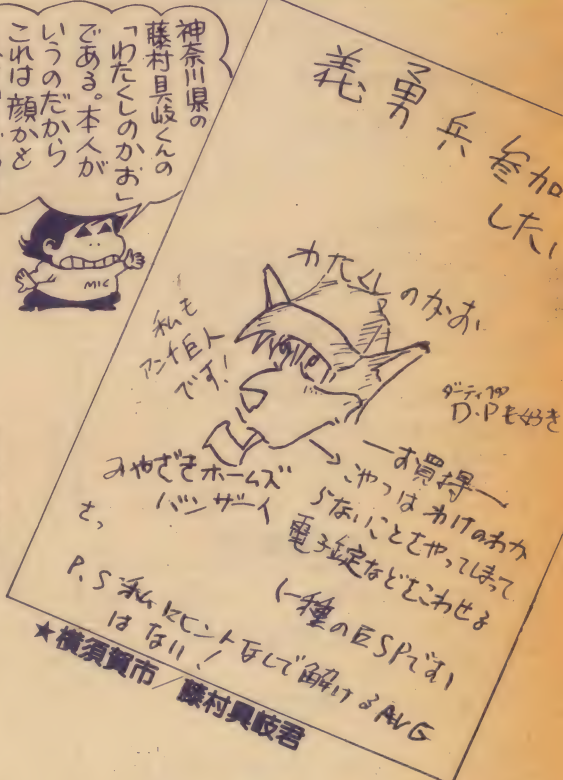 神奈川県の
藤村具岐くんの
「わたくしのかお」
である。本人が
いうのだから
これは顔かと
MIC
義勇兵参加
したい
わたくしのかお
私も
アンチ巨人
です!
ダーティペア
D.Pも好き
みやざきホームズ
バンザーイ
―お買得―
こやつはわけのわか
らないことをやってしまって
電子錠などをこわせる
(一種のESPです)
さっ
P.S 私にヒントなしで解けるAVG
はない!
★横須賀市/藤村具岐君